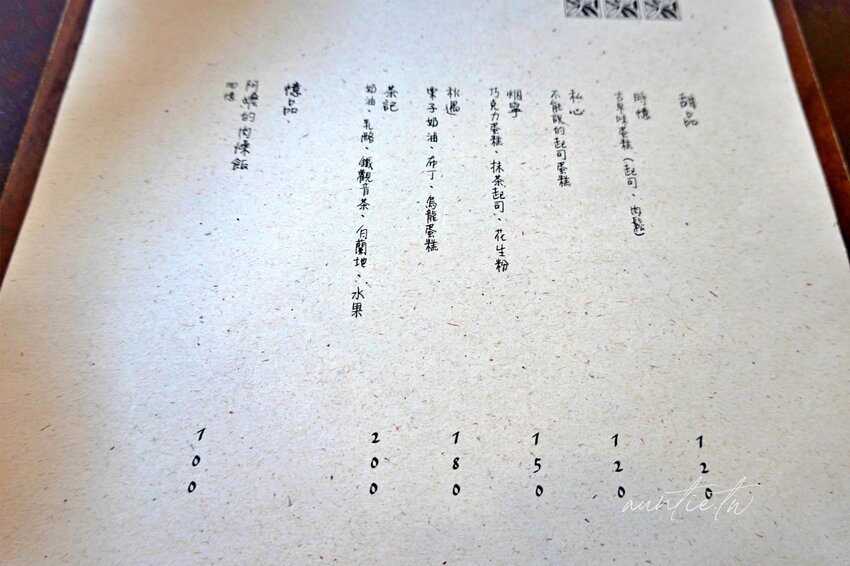 甜品
昨憶
古早味蛋糕(起司、肉鬆)
私心
不能說的起司蛋糕
烟寧
巧克力蛋糕、抹茶起司、花生粉
秋遇
栗子奶油、布丁、烏龍蛋糕
茶記
奶油、乳酪、鐵觀音茶、白蘭地、水果
憶品
阿嬤的肉燥飯
回憶
120
120
150
180
200
100
auntie.tw